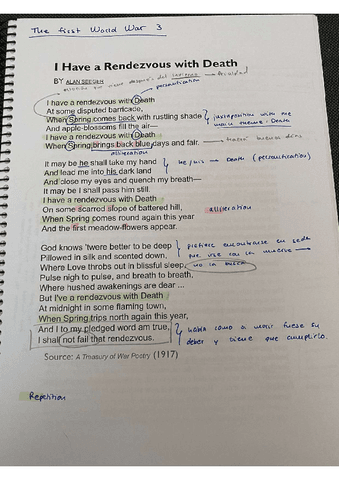 The First World War 3
I Have a Rendezvous with Death
BY ALAN SEEGER
personification
I have a rendezvous with Death
At some disputed barricade,
When Spring comes back with rustling shade
juxtaposition with the
And apple-blossoms fill the air—
main theme: Death
I have a rendezvous with Death
When Spring brings back blue days and fair.
alliteration
It may be he shall take my hand
he/his → Death (personification)
And lead me into his dark land
And close my eyes and quench my breath—
It may be I shall pass him still.
I have a rendezvous with Death
On some scarred slope of battered hill,
alliteration
When Spring comes round again this year
And the first meadow-flowers appear.
God knows 'twere better to be deep
prefiere
Pillowed in silk and scented down,
Where Love throbs out in blissful sleep,
no la busca
Pulse nigh to pulse, and breath to breath,
Where hushed awakenings are dear ...
But I've a rendezvous with Death
At midnight in some flaming town,
When Spring trips north again this year,
And I to my pledged word am true,
habla como si morir fuese su
I shall not fail that rendezvous.
deber y tiene que cumplirlo.
Source: A Treasury of War Poetry (1917)
Repetition